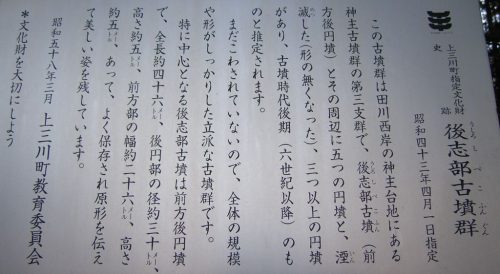 上三川町指定文化財
史跡 後志部古墳群
うしろしべこふんぐん
昭和四十三年四月一日指定
この古墳群は田川西岸の神主台地にある
神主古墳群の第三支群で、後志部古墳（前
方後円墳）とその周辺に五つの円墳と、湮
滅した（形の無くなった）、三つ以上の円墳
があり、古墳時代後期（六世紀以降）のも
のと推定されます。
まだこわされていないので、全体の規模
や形がしっかりした立派な古墳群です。
特に中心となる後志部古墳は前方後円墳
で、全長約四十六メートル、後円部の径約三十メートル、
高さ約五メートル、前方部の幅約二十六メートル、高さ
約五メートル、あって、よく保存され原形を伝え
て美しい姿を残しています。
昭和五十八年三月 上三川町教育委員会
＊文化財を大切にしよう